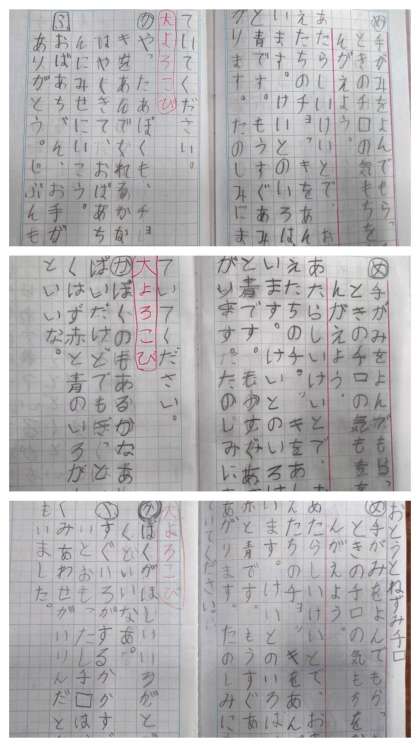 め手がみをよんでもらっ
ときのチロの気もちを
んがえよう。
あたらしいけいとで、お
えたちのチョッキをあん
います。けいとのいろは
と青です。もうすぐあみ
がります。たのしみにま
ていてください。
大よろこび
や、たあぼくも、チョ
きをあんでくれるかな
はやくきて、おばあち
んにみせにいこう
ふおばあちゃん、お手が
ありがとう。じぶんも
め手がみをよんでもらっ
ときのチロの気もちを
んがえよう。
あたらしいけいとで、お
えたちのチョッキをあん
います。けいとのいろは
と青です。もうすぐあ
がります。たのしみに
ていてください。
大よろこび
かぼくのもあるかなあ
ぱいだけどでもきっと
くはず赤と青のいろが
といいな。
おとうとねずみチロ
め手がみをよんでもらっ
ときのチロの気もちを
んがえよう。
あたらしいけいとで、お
えたちのチョッキをあん
います。けいとのいろは
赤と青です。もうすぐあ
あがります。たのしみに
ていてください。
大よろこび
かぼくがほしいいろがと
くといいなあ。
すぐいろがするかかす
いとおもったしチロは
くみあわせがいりんだと
もいました。